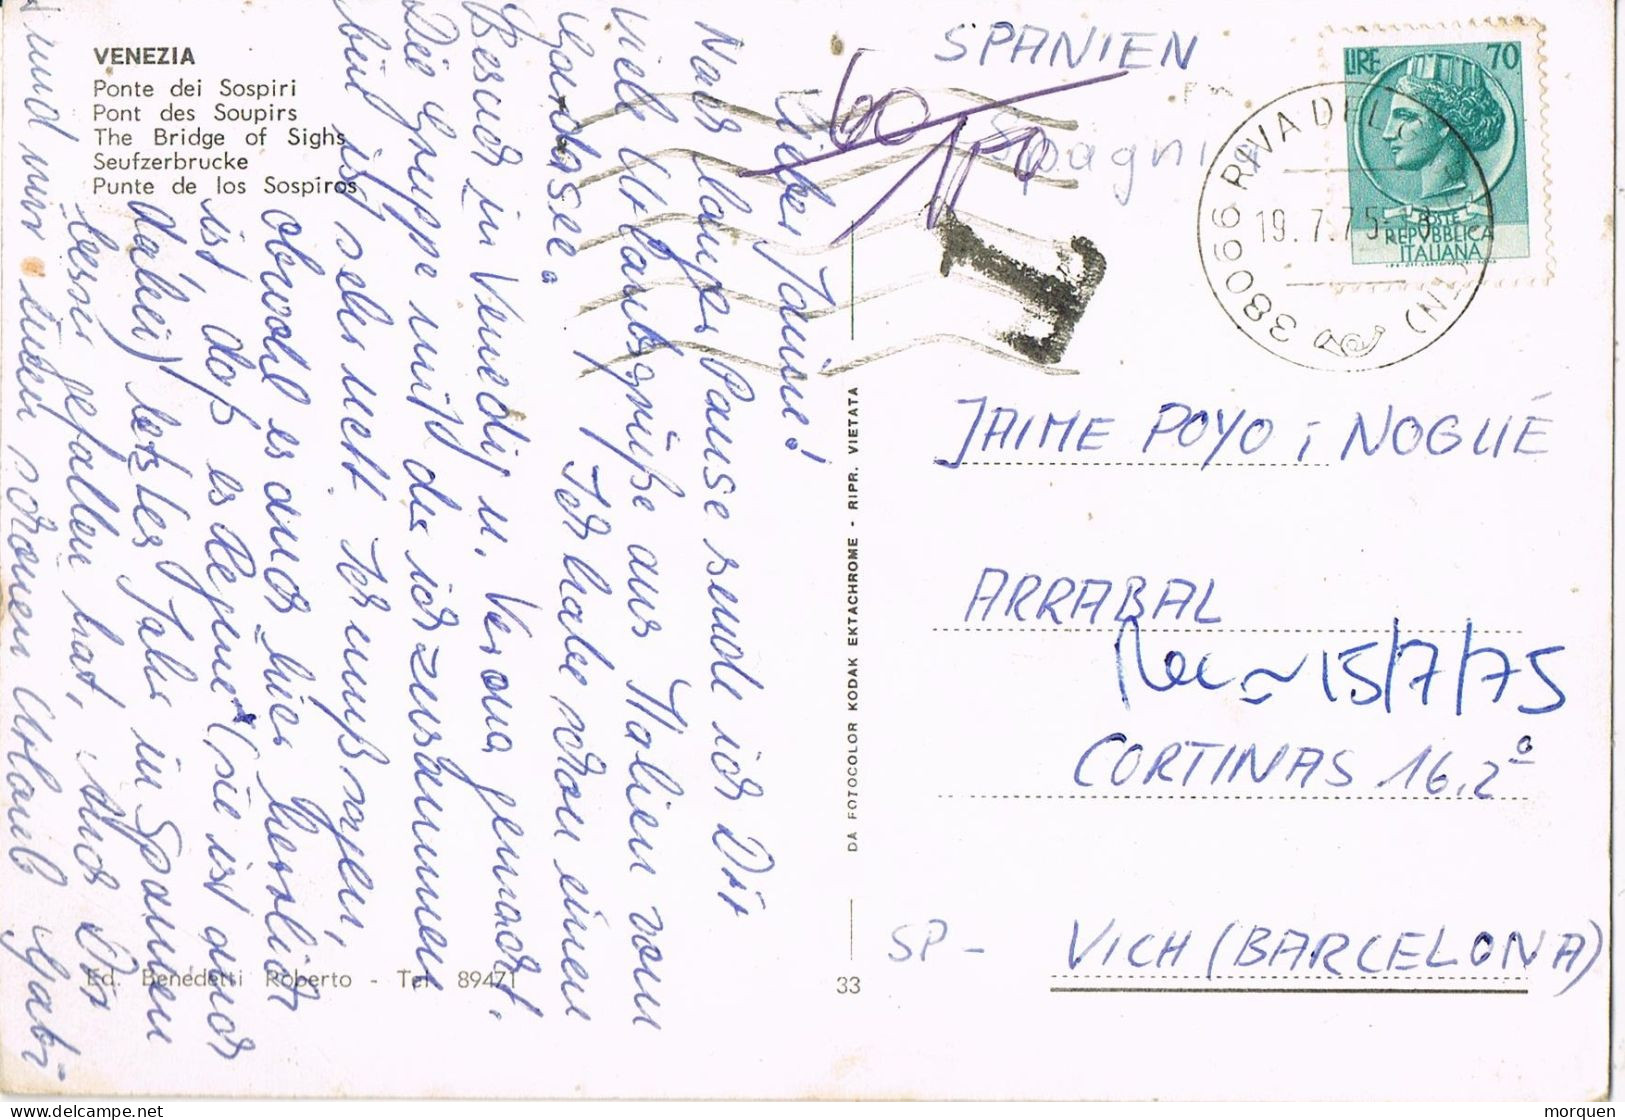 VENEZIA
Ponte dei Sospiri
Pont des Soupirs
The Bridge of Sighs
Seufzerbrucke
Punte de los Sospiros
Lieber Jaime!
Nach langer Pause sende ich Dir
viele Urlaubsgrüße aus Italien vom
Gardasee. Ich habe schon einen
Besuch in Venedig u. Verona gemacht.
Die Gruppe mit der ich zusammen
bin ist sehr nett. Ich muß sagen,
obwohl es auch hier herrlich
ist, daß es Regine (sie ist auch
dabei) letztes Jahr in Spanien
besser gefallen hat. Auch Dir
und schönen Urlaub Gabi
Ed. Benedetti Roberto - Tel 89471
33
DA FOTOCOLOR KODAK EKTACHROME - RIPR. VIETATA
SPANIEN
Spagnia
T
LIRE 70
POSTE
REPVBBLICA
ITALIANA
38066 RIVA DEL
19.7.75
JAIME POYO i NOGUÉ
ARRABAL
15/7/75
CORTINAS 16.2º
SP - VICH (BARCELONA)
morquen